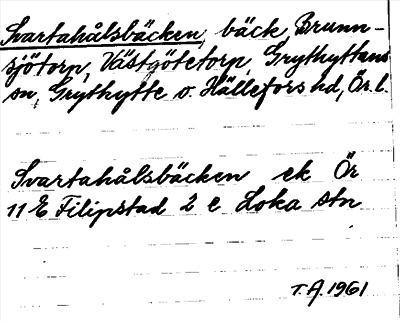 Svartahålsbäcken, bäck, Brunn-
sjötorp, Västgötetorp, Grythyttans
sn, Grythytte o. Hällefors hd, Ör. l.
Svartahålsbäcken ek Ör
11 E Filipstad 2 e Loka stn
T.A. 1961